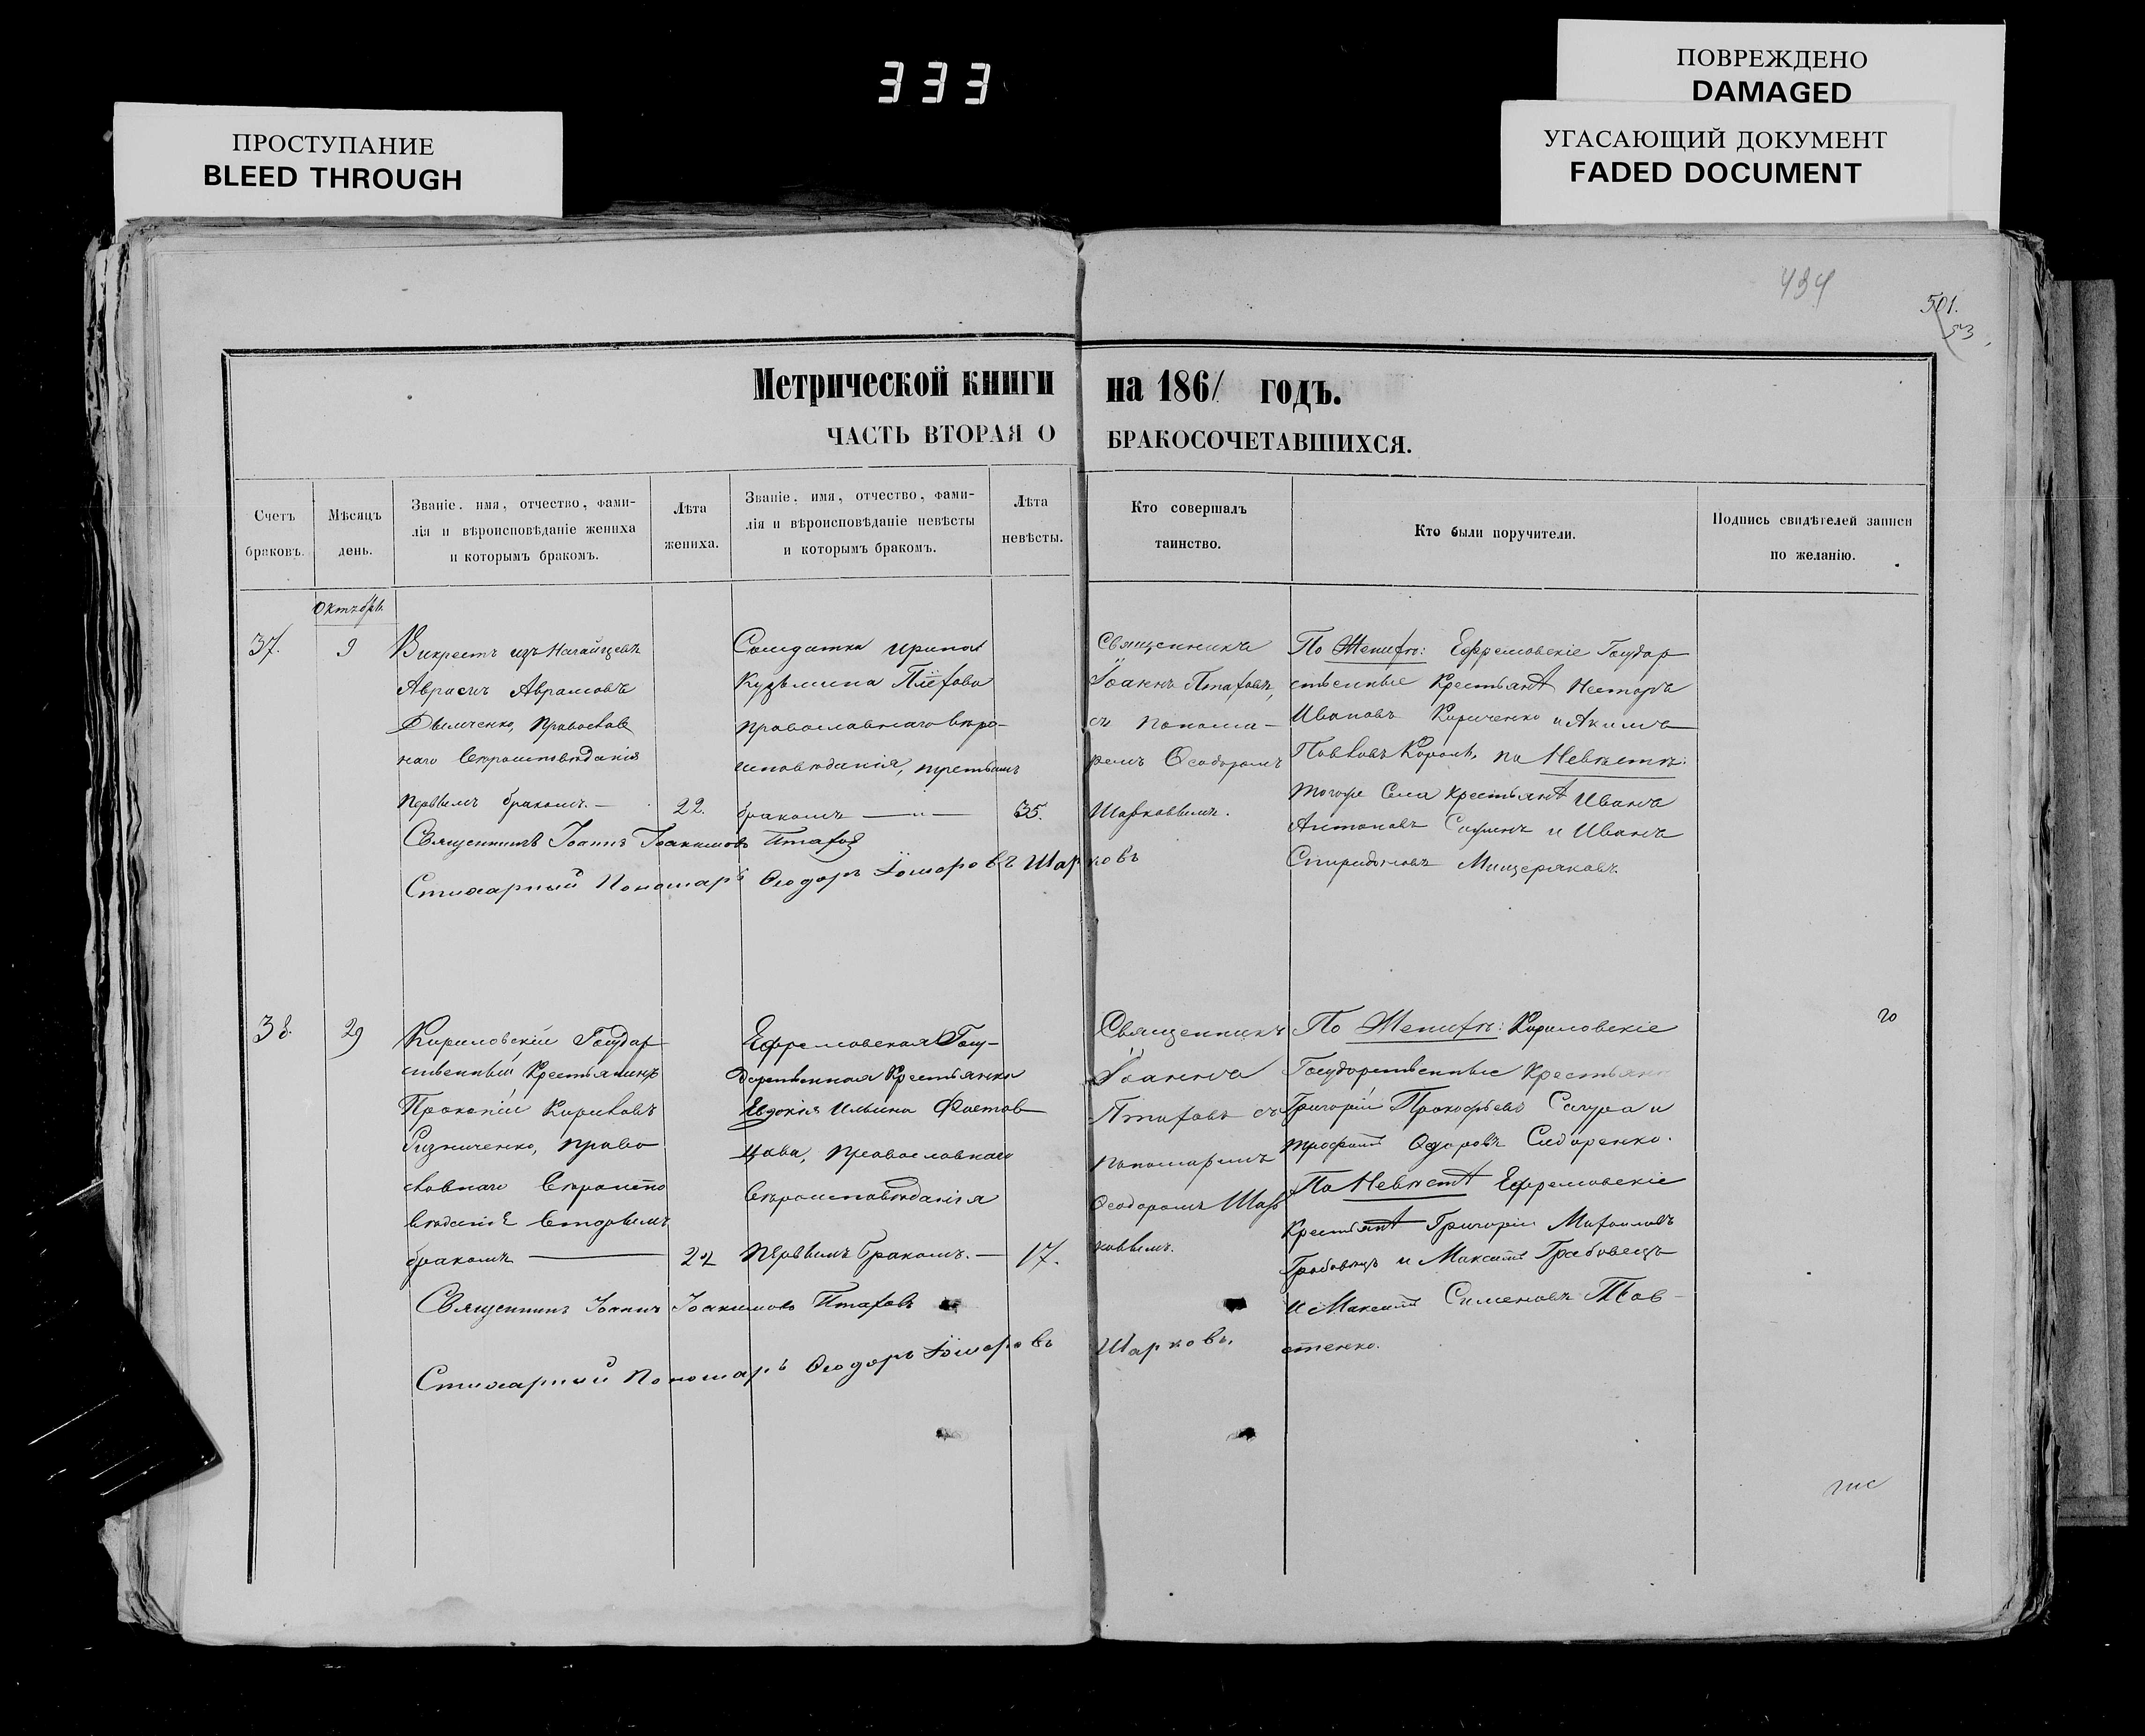 333
ПОВРЕЖДЕНО
DAMAGED
УГАСАЮЩИЙ ДОКУМЕНТ
FADED DOCUMENT
ПРОСТУПАНИЕ
BLEED THROUGH
494
501.
53
Метрической книги на 1861 годъ.
ЧАСТЬ ВТОРАЯ О БРАКОСОЧЕТАВШИХСЯ.
Счетъ
браковъ.
Мѣсяцъ
день.
Званіе, имя, отчество, фами-
лія и вѣроисповѣданіе жениха
и которымъ бракомъ.
Лѣта
жениха.
Званіе, имя, отчество, фами-
лія и вѣроисповѣданіе невѣсты
и которымъ бракомъ.
Лѣта
невѣсты.
Кто совершалъ
таинство.
Кто были поручители.
Подпись свидѣтелей записи
по желанію.
Октябрь
37.
9
Викрестъ изъ Нагайцевъ
Аврамовъ
Дымченко, Православ
наго вѣроисповѣданія
первымъ бракомъ.—
22.
Солдатка Ирина
Кузьмина
православнаго вѣро-
исповѣданія, третьимъ
бракомъ — " —
35.
Священникъ
Іоаннъ Птаховъ,
съ понома-
ремъ Ѳеодоромъ
Шарковымъ.
По Женихѣ: Ефремовскіе Государ
ственные крестьяне Несторъ
Ивановъ Кириченко и Акимъ
Павловъ Король, по Невѣстѣ:
того же Села крестьяне Иванъ
Антоновъ и Иванъ
Спиридоновъ Мищеряковъ.
Священникъ Іоаннъ Іоакимовъ Птаховъ
Стихарный Пономарь Ѳеодоръ Шарковъ
38.
29
Кириловскій Государ
ственный Крестьянинъ
Прокопій Кириловъ
Ризниченко, право
славнаго вѣроиспо
вѣданія вторымъ
бракомъ —
22
Ефремовская Госу-
дарственная Крестьянка
Евдокія Ильина Фастов
цова, православнаго
вѣроисповѣданія
первымъ бракомъ. —
17.
Священникъ
Іоаннъ
Птаховъ съ
пономаремъ
Ѳеодоромъ Шар
ковымъ.
По Женихѣ: Кириловскіе
Государственные крестьяне
Григорій Прокофьевъ и
Трофимъ Сидоренко.
По Невѣстѣ Ефремовскіе
крестьяне Григорій Михайловъ
Грабовецъ и Максимъ Грабовецъ
и Максимъ Сименовъ Тов-
стенко.
Священникъ Іоаннъ Іоакимовъ Птаховъ
Стихарный Пономарь Ѳеодоръ Шарковъ.